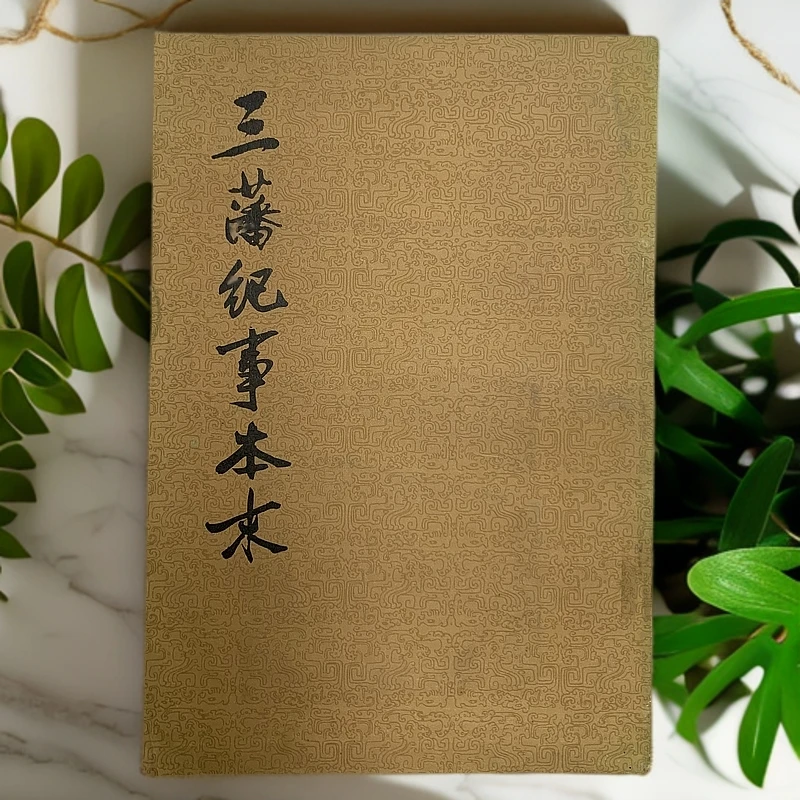 三藩紀事本末